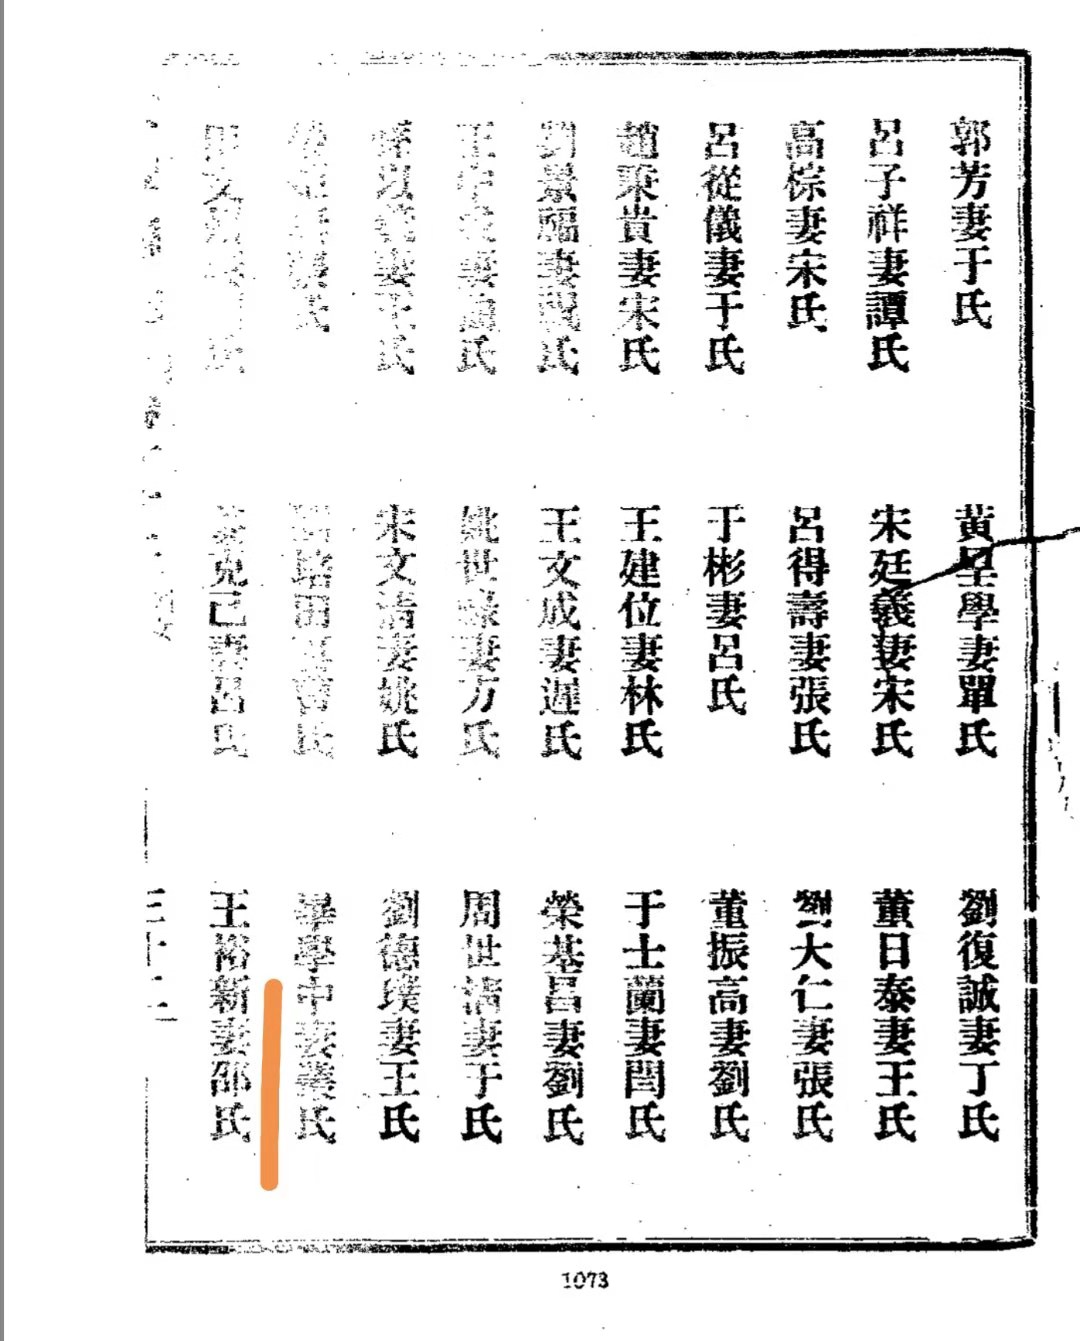 郭芳妻于氏
黃星學妻單氏
劉復誠妻丁氏
呂子祥妻譚氏
宋廷義妻宋氏
董日泰妻王氏
高悰妻宋氏
呂得壽妻張氏
劉大仁妻張氏
呂從儀妻于氏
于彬妻呂氏
董振高妻劉氏
趙秉貴妻宋氏
王建位妻林氏
于士蘭妻閆氏
劉景 妻 氏
王文成妻遲氏
榮基昌妻劉氏
王 妻 氏
姚世 妻方氏
周世清妻于氏
以 妻 氏
宋文清妻姚氏
劉德璞妻王氏
氏
培田 氏
畢學中妻叢氏
文 氏
克己妻呂氏
王裕新妻邵氏
三十二
1073